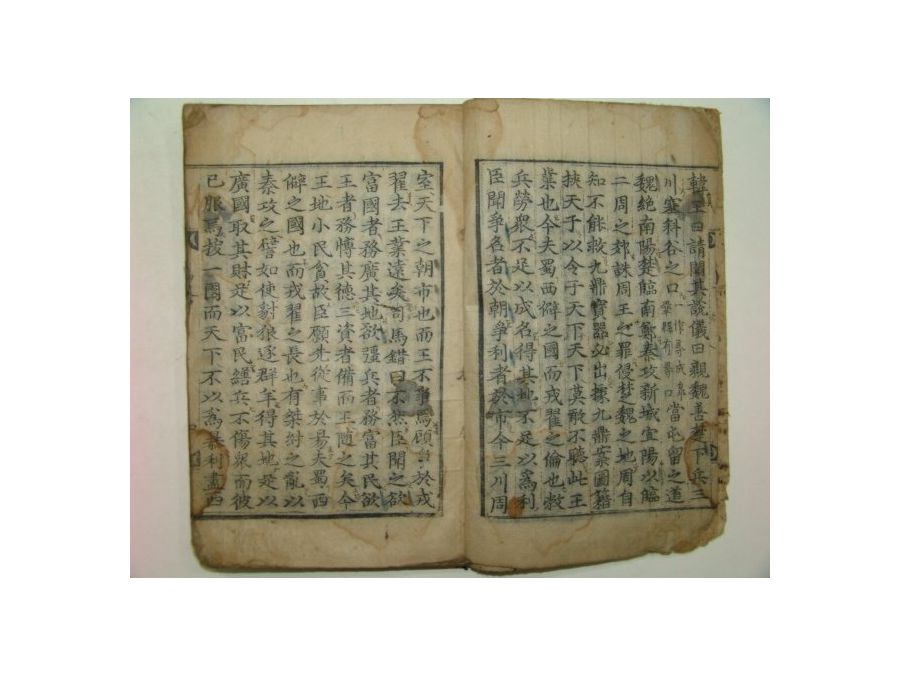 韓王曰請聞其說儀曰親魏善楚下兵三
川塞斜谷之口當屯留之道
魏絶南陽楚臨南鄭秦攻新城宜陽以臨
二周之郊誅周王之罪侵楚魏之地周自
知不能救九鼎寶器必出據九鼎案圖籍
挾天子以令于天下天下莫敢不聽此王
業也今夫蜀西僻之國而戎翟之倫也敝
兵勞衆不足以成名得其地不足以爲利
臣聞爭名者於朝爭利者於市今三川周
室天下之朝市也而王不爭焉顧爭於戎
翟去王業遠矣司馬錯曰不然臣聞之欲
富國者務廣其地欲彊兵者務富其民欲
王者務博其德三資者備而王隨之矣今
王地小民貧故臣願先從事於易夫蜀西
僻之國也而戎翟之長也有桀紂之亂以
秦攻之譬如使豺狼逐群羊得其地足以
廣國取其財足以富民繕兵不傷衆而彼
已服焉拔一國而天下不以爲利盡西